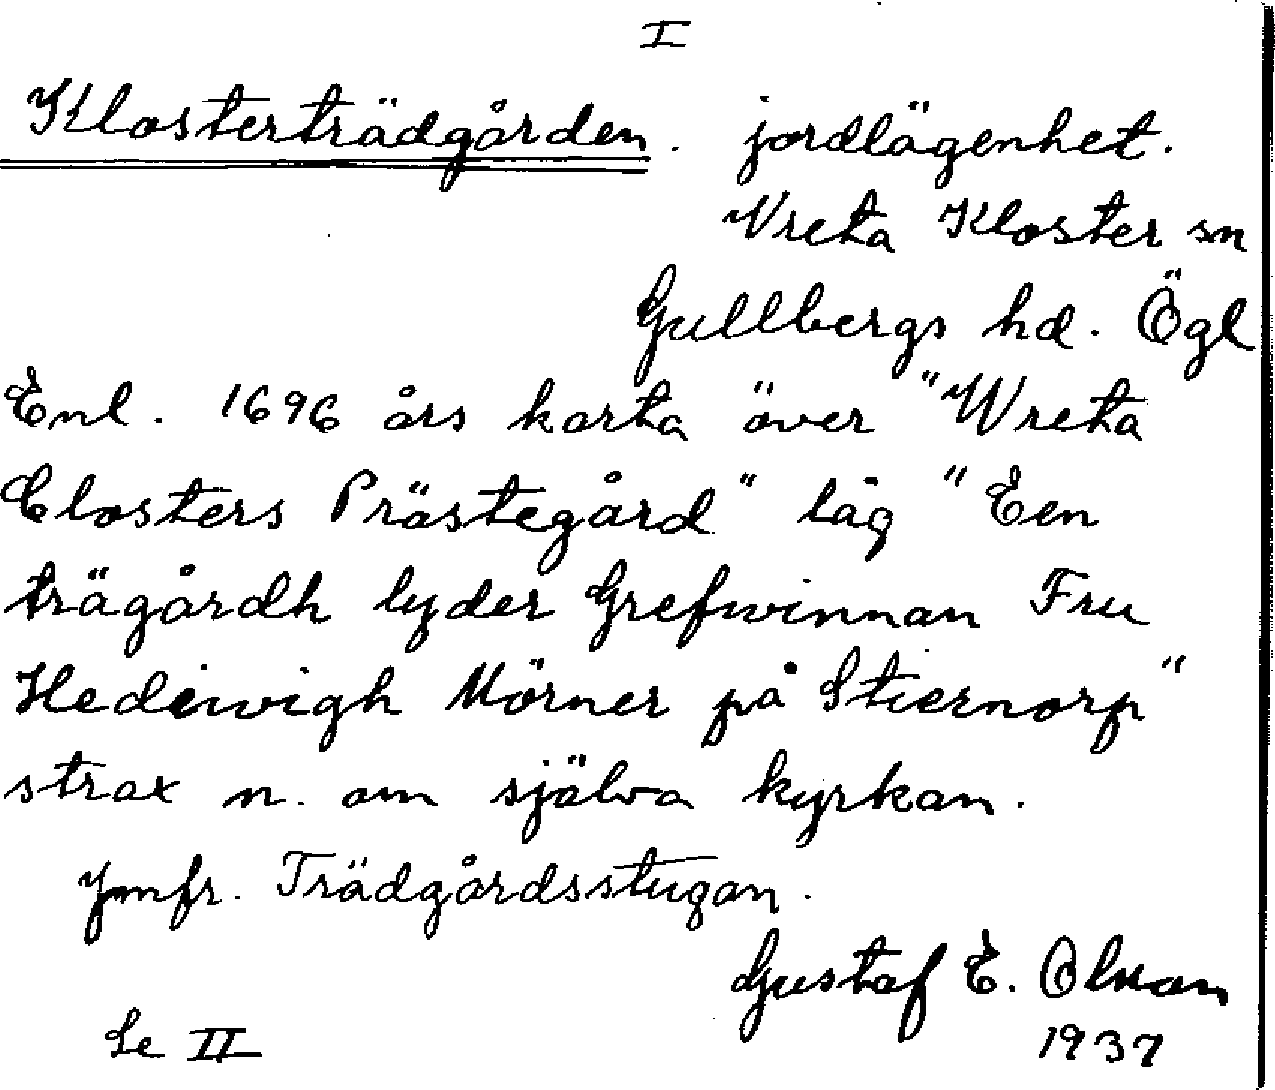 I
Klosterträdgården. jordlägenhet.
Vreta Kloster sn
Gullbergs hd. Ögl
Enl. 1696 års karta över "Wreta
Closters Prästegård" låg "Een
trägårdh lyder Grefwinnan Fru
Hedewigh Mörner på Stiernorp"
strax n. om själva kyrkan.
Jmfr. Trädgårdsstugan.
Gustaf E. Olsson
Se II 1937